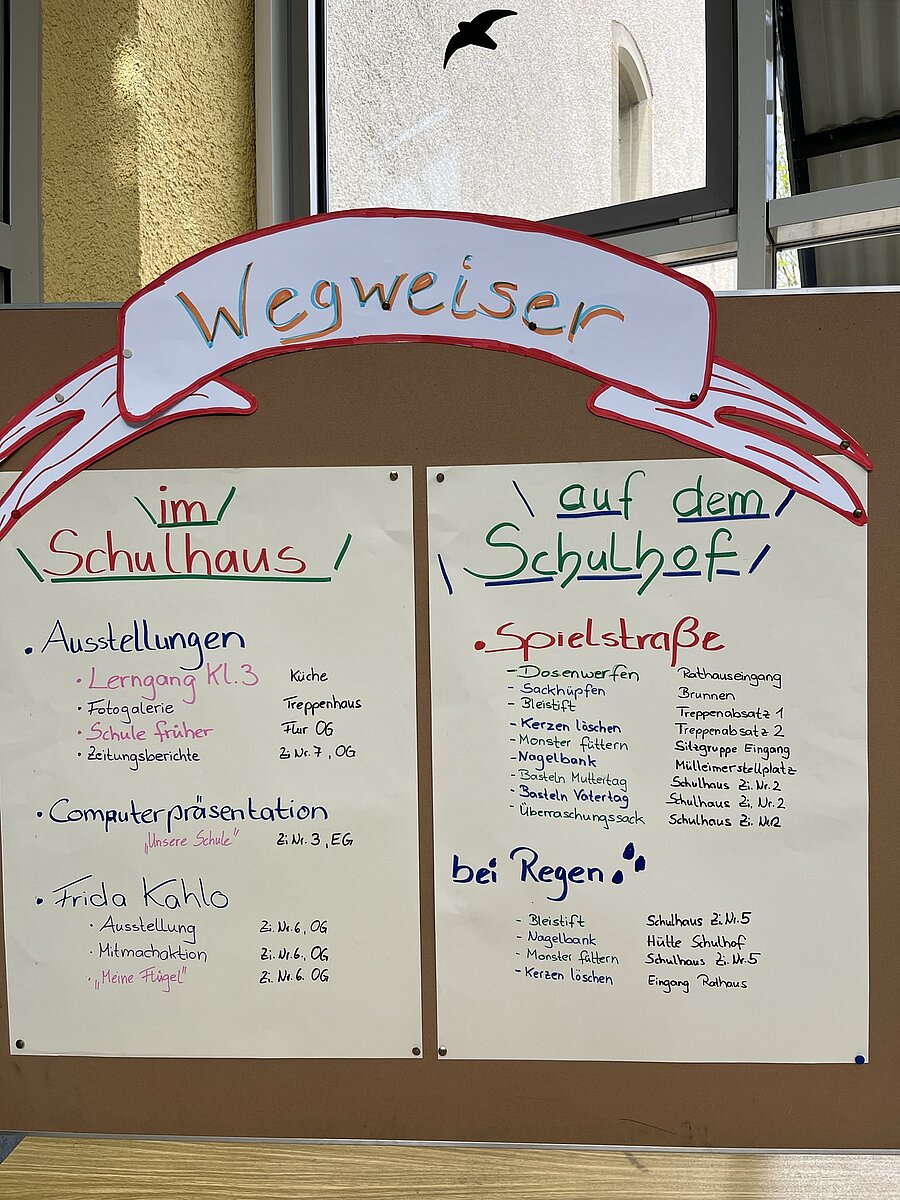 Wegweiser
im
Schulhaus
• Ausstellungen
• Lerngang Kl.3 Küche
• Fotogalerie Treppenhaus
• Schule früher Flur OG
• Zeitungsberichte Zi Nr. 7, OG
• Computerpräsentation
„Unsere Schule" Zi Nr. 3, EG
• Frida Kahlo
• Ausstellung Zi. Nr. 6, OG
• Mitmachaktion Zi. Nr. 6., OG
• „Meine Flügel" Zi. Nr. 6. OG
auf dem
Schulhof
• Spielstraße
- Dosenwerfen Rathauseingang
- Sackhüpfen Brunnen
- Bleistift Treppenabsatz 1
- Kerzen löschen Treppenabsatz 2
- Monster füttern Sitzgruppe Eingang
- Nagelbank Mülleimerstellplatz
- Basteln Muttertag Schulhaus Zi. Nr. 2
- Basteln Vatertag Schulhaus Zi, Nr. 2
- Überraschungssack Schulhaus Zi. Nr 2
bei Regen
- Bleistift Schulhaus Zi. Nr. 5
- Nagelbank Hütte Schulhof
- Monster füttern Schulhaus Zi. Nr. 5
- Kerzen löschen Eingang Rathaus